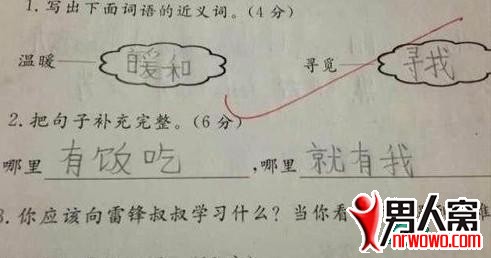 1.写出下面词语的近义词。(4分)
温暖 暖和 寻觅 寻找
2.把句子补充完整。(6分)
哪里有饭吃,哪里就有我
3.你应该向雷锋叔叔学习什么?当你看
男人窝
nrwowo.com